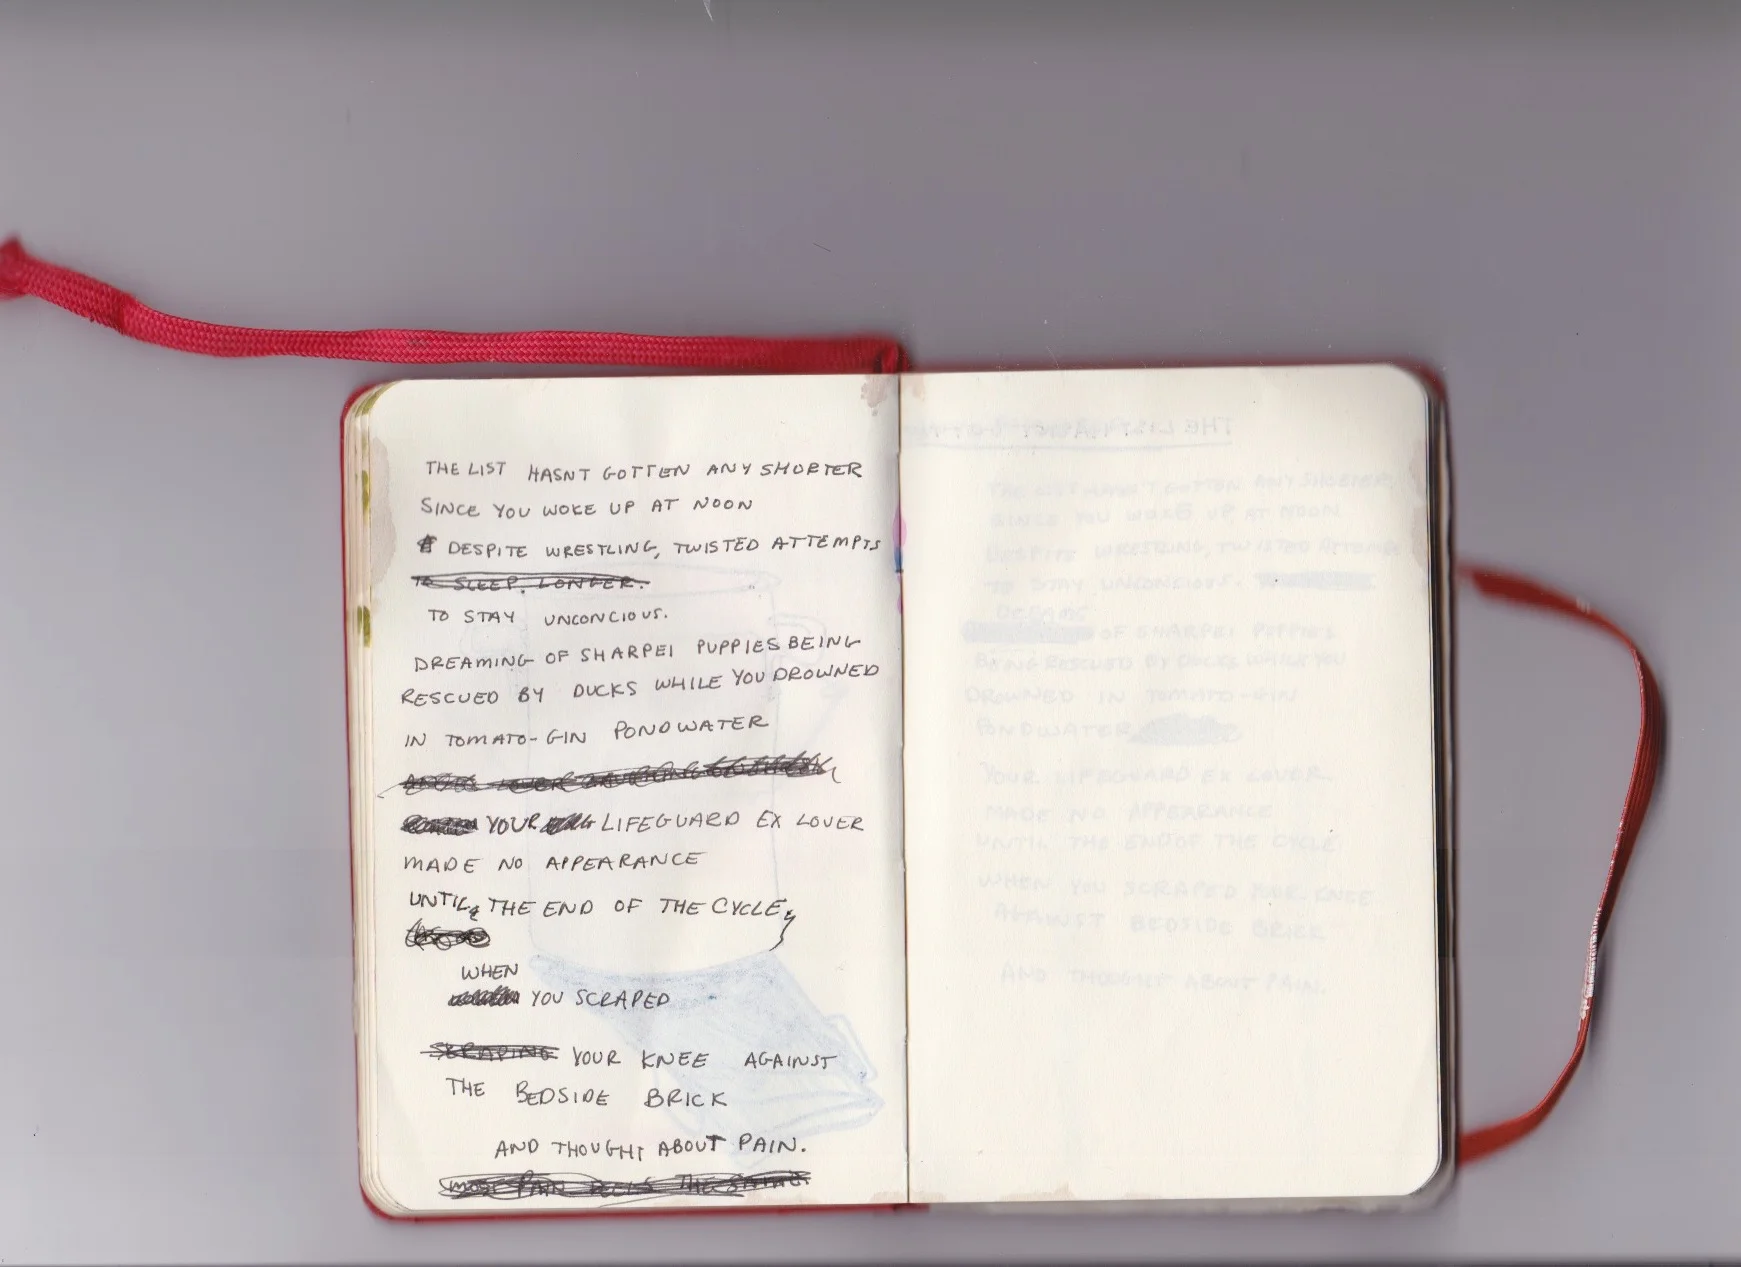 THE LIST HASNT GOTTEN ANY SHORTER
SINCE YOU WOKE UP AT NOON
DESPITE WRESTLING, TWISTED ATTEMPTS
TO SLEEP LONGER.
TO STAY UNCONCIOUS.
DREAMING OF SHARPEI PUPPIES BEING
RESCUED BY DUCKS WHILE YOU DROWNED
IN TOMATO-GIN PONDWATER
YOUR LIFEGUARD EX LOVER
MADE NO APPEARANCE
UNTIL THE END OF THE CYCLE,
WHEN
YOU SCRAPED
SCRAPING YOUR KNEE AGAINST
THE BEDSIDE BRICK
AND THOUGHT ABOUT PAIN.
MOST PAIN FEELS THE SAME.
THE LIST HASN'T GOTTEN
THE LIST HASN'T GOTTEN ANY SHORTER
SINCE YOU WOKE UP AT NOON
DESPITE WRESTLING, TWISTED ATTEMPTS
TO STAY UNCONCIOUS.
DREAMS
OF SHARPEI PUPPIES
BEING RESCUED BY DUCKS WHILE YOU
DROWNED IN TOMATO-GIN
PONDWATER
YOUR LIFEGUARD EX LOVER
MADE NO APPEARANCE
UNTIL THE END OF THE CYCLE
WHEN YOU SCRAPED YOUR KNEE
AGAINST BEDSIDE BRICK
AND THOUGHT ABOUT PAIN.